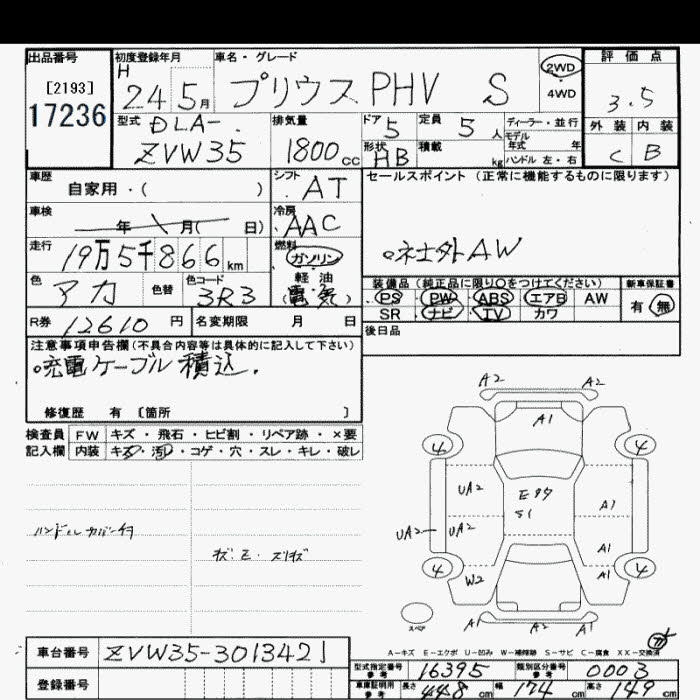 出品番号 初度登録年月 車名・グレード 評価点
[2193] H 24 5月 プリウス PHV S 2WD 4WD 3.5
17236
型式 DLA- ZVW35 排気量 1800cc ドア 5 定員 5人 ディーラー・並行 外装 内装
形状 HB 積載 kg モデル年式 年 ハンドル 左・右 C B
車歴 自家用・( ) シフト AT セールスポイント (正常に機能するものに限ります)
車検 年 月( 日) 冷房 AAC
走行 19万5千866km 燃料 ガソリン 軽油 (電気) 。社外AW
色 アカ 色替 色コード 3R3 装備品 (純正品に限り○をつけてください) 新車保証書
PS PW ABS エアB AW 有 無
R券 12610円 名変期限 月 日 SR ナビ TV カワ
後日品
注意事項申告欄(不具合内容等は具体的に記入して下さい)
。充電ケーブル積込.
修復歴 有 [箇所 ]
検査員 FW キズ・飛石・ヒビ割・リペア跡・×要
記入欄 内装 キズ・汚・コゲ・穴・スレ・キレ・破レ
A2 A2
A1
4 4
UA2 A1
S1
UA2 UA2 A1
4 W2 A1 4
スペア A1 A2 A1
ハンドルカバー付
A-キズ E-エクボ U-凹み W-補修跡 S-サビ C-腐食 XX-交換済
車台番号 ZVW35-3013421
登録番号
型式指定番号 参考 16395 類別区分番号 参考 0003
車庫証明用 参考 長さ 448cm 幅 174cm 高さ 149cm